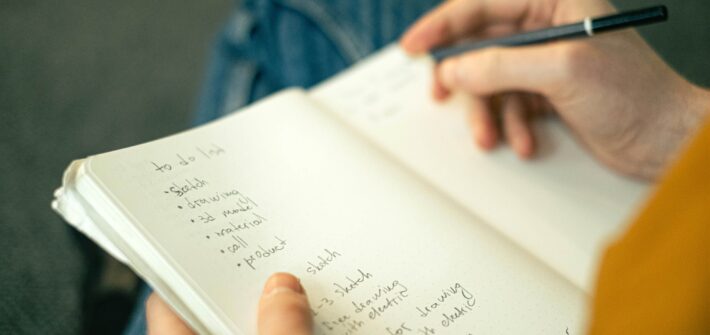 to do list
• sketch
• drawing
• 3d model
• material
• call
• product
sketch
2-3 sketch
free drawing
with electric
for drawing
with electric